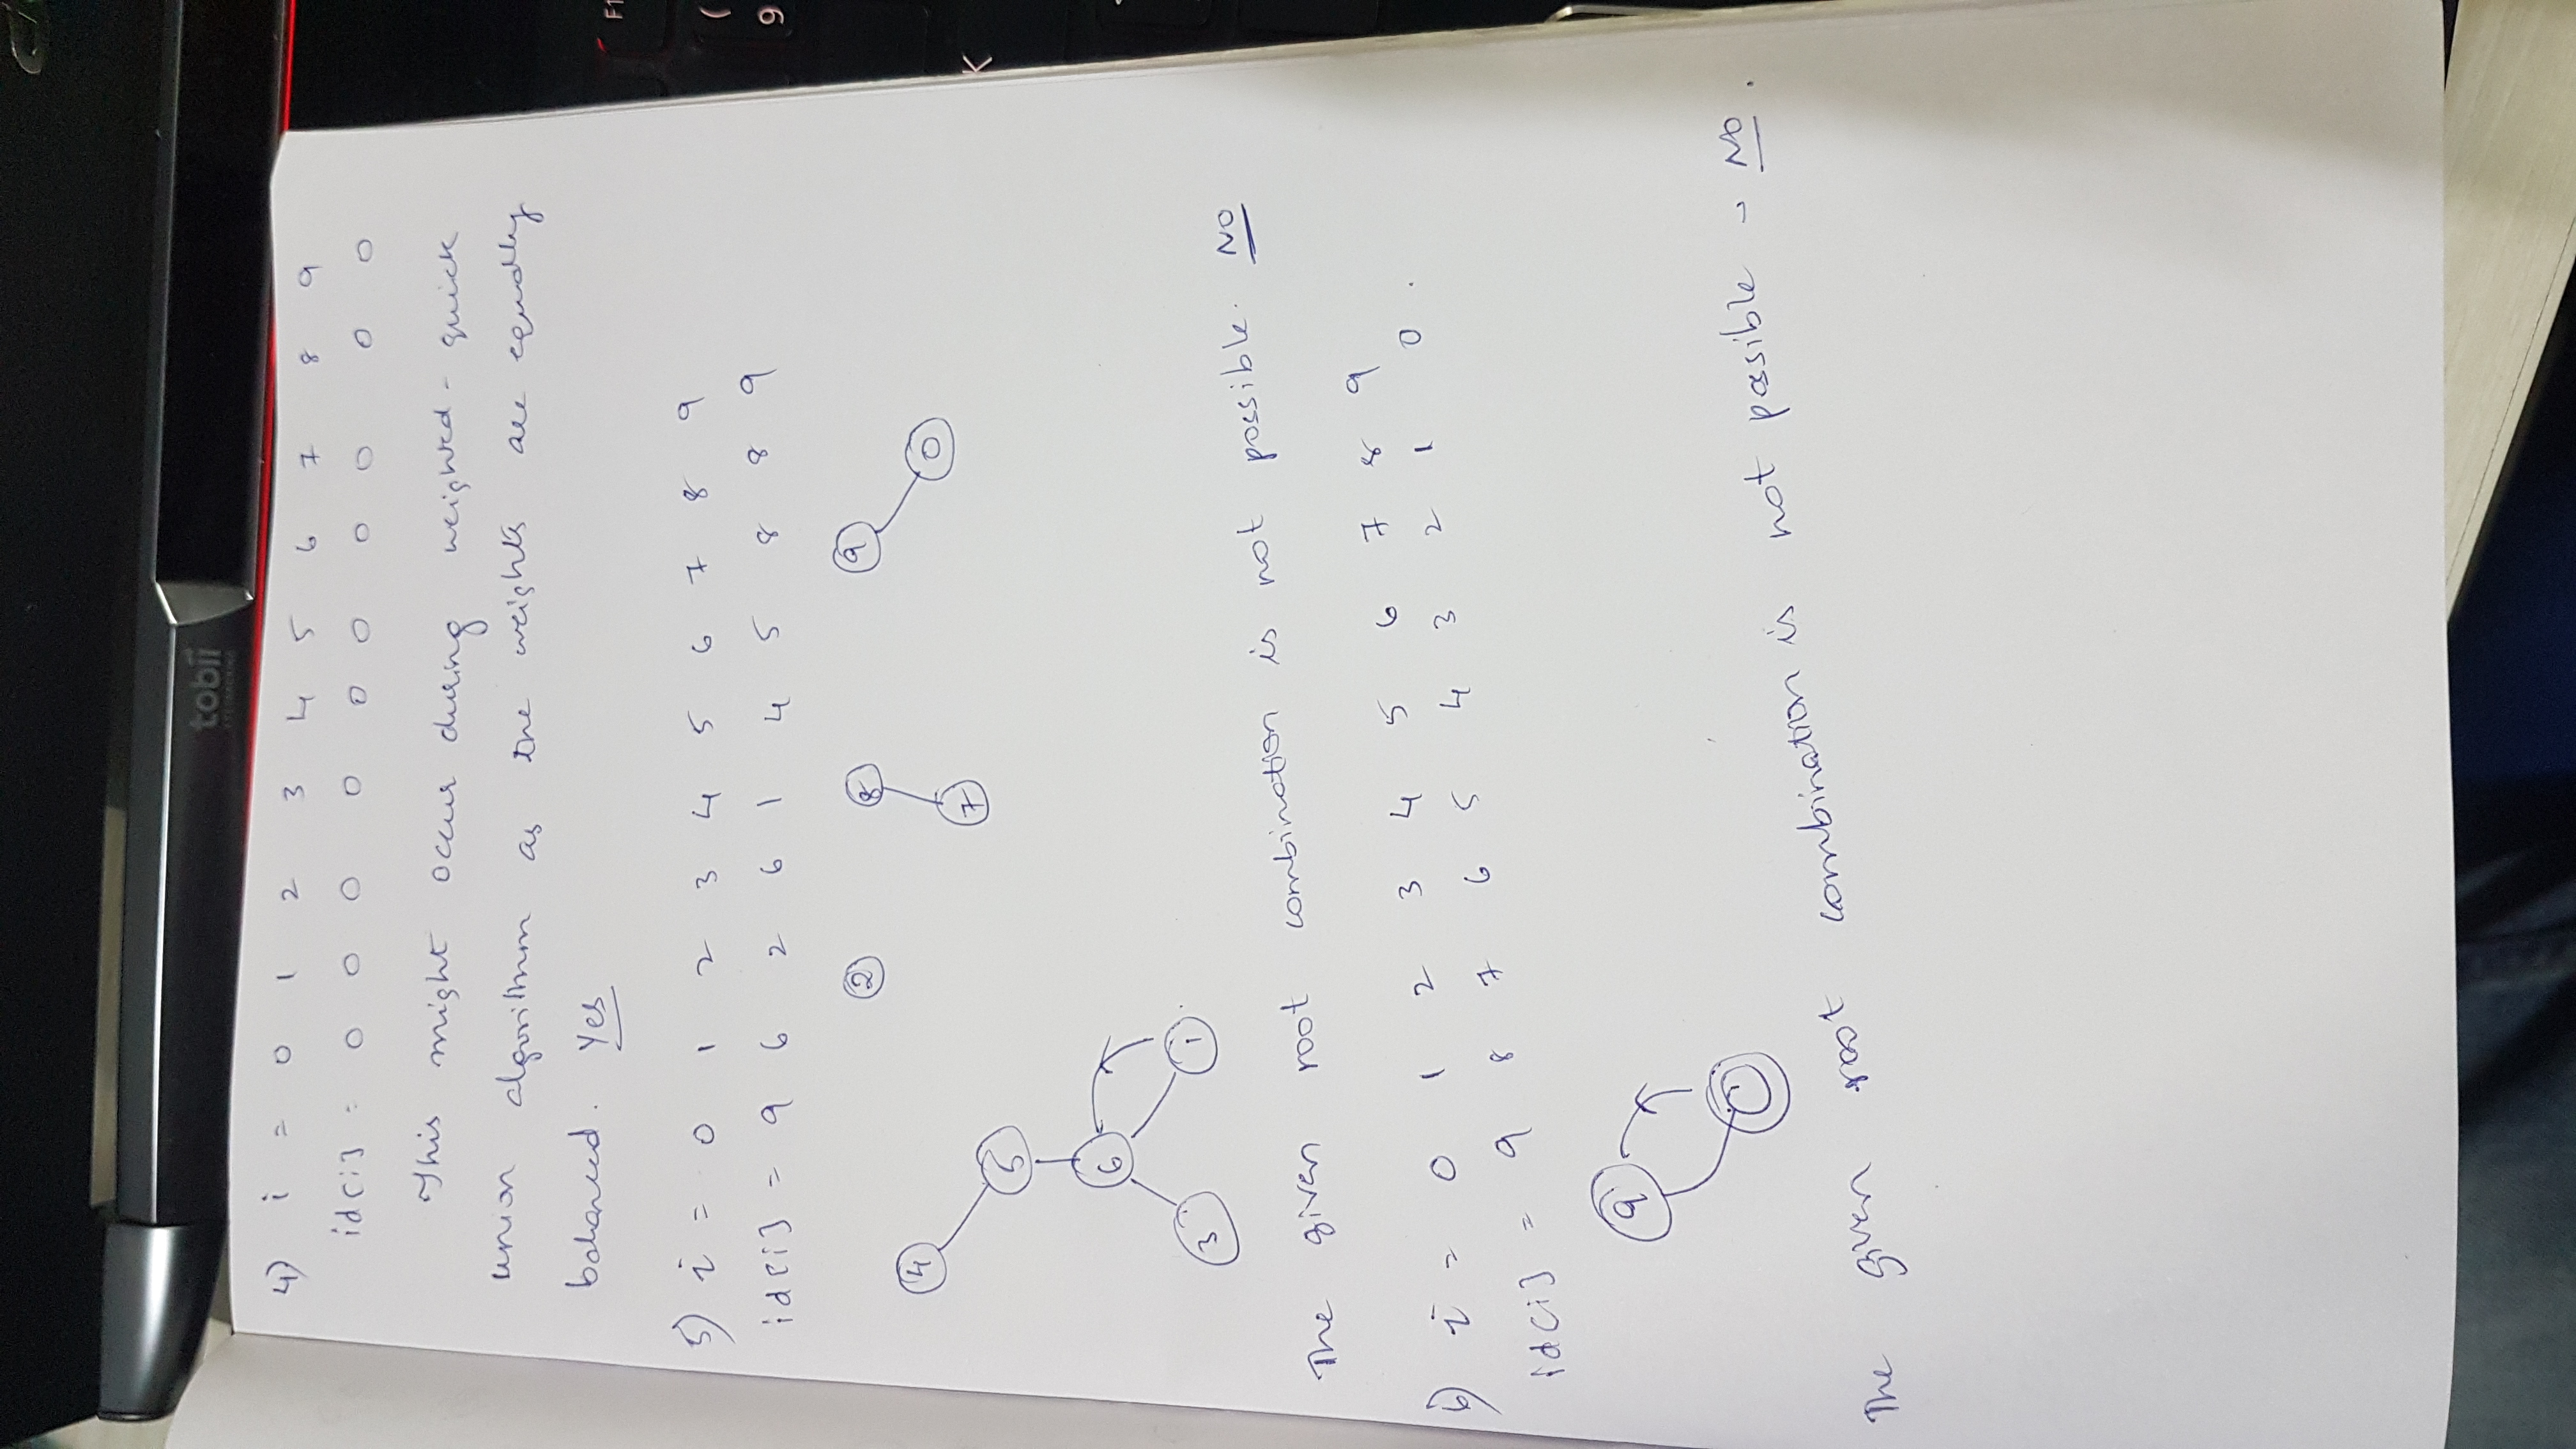 tobii
EYETRACKING
F1
(
9
K
4) i = 0 1 2 3 4 5 6 7 8 9
id[i] = 0 0 0 0 0 0 0 0 0 0
This might occur during weighted - quick
union algorithm as the weights are equally
balanced. Yes
5) i = 0 1 2 3 4 5 6 7 8 9
id[i] = 9 6 2 6 1 4 5 8 8 9
2 8 9
4 7 0
5
6
3 1
The given root combination is not possible. NO
6) i = 0 1 2 3 4 5 6 7 8 9
id[i] = 9 8 7 6 5 4 3 2 1 0 .
9
The given root combination is not possible - NO.